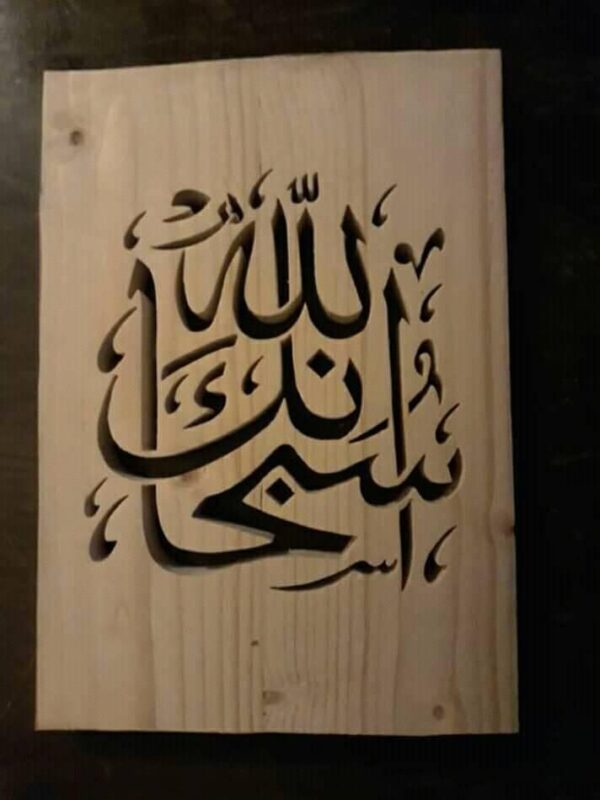 سبحانك الله